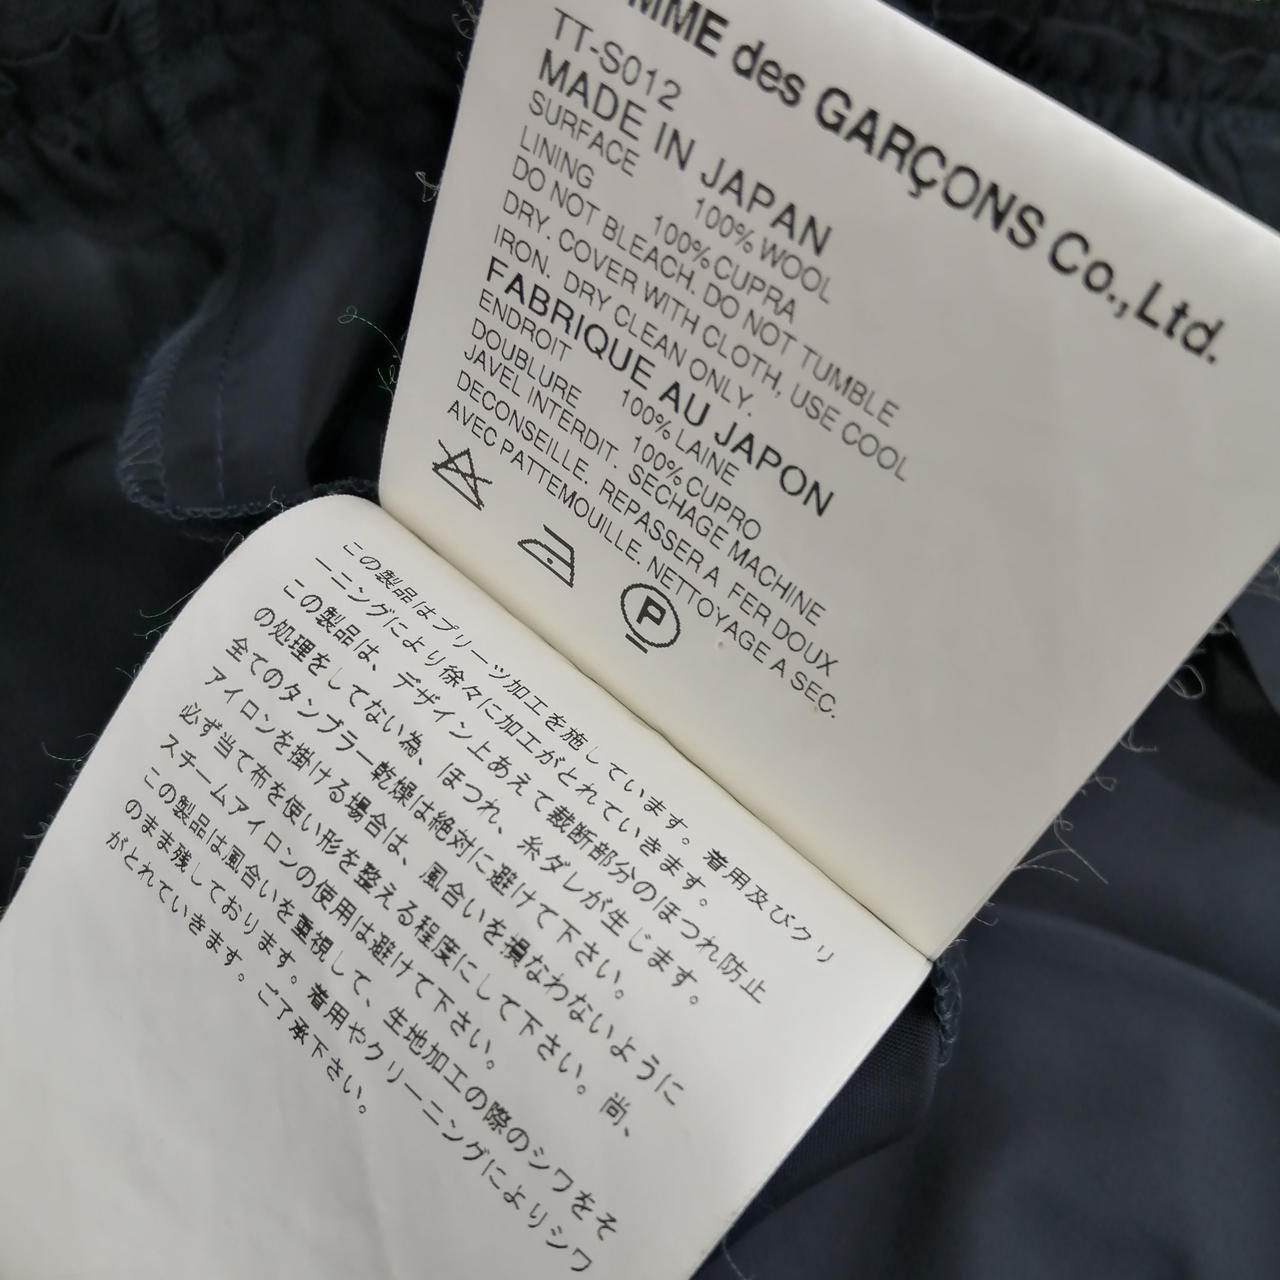 MME des GARÇONS Co., Ltd.
TT-S012
MADE IN JAPAN
SURFACE 100% WOOL
LINING 100% CUPRA
DO NOT BLEACH. DO NOT TUMBLE
DRY. COVER WITH CLOTH, USE COOL
IRON. DRY CLEAN ONLY.
FABRIQUE AU JAPON
ENDROIT 100% LAINE
DOUBLURE 100% CUPRO
JAVEL INTERDIT. SECHAGE MACHINE
DECONSEILLE. REPASSER A FER DOUX
AVEC PATTEMOUILLE. NETTOYAGE A SEC.
P
この製品はプリーツ加工を施しています。着用及びクリ
ーニングにより徐々に加工がとれていきます。
この製品は、デザイン上あえて裁断部分のほつれ防止
の処理をしてない為、ほつれ、糸ダレが生じます。
全てのタンブラー乾燥は絶対に避けて下さい。
アイロンを掛ける場合は、風合いを損なわないように
必ず当て布を使い形を整える程度にして下さい。尚、
スチームアイロンの使用は避けて下さい。
この製品は風合いを重視して、生地加工の際のシワをそ
のまま残しております。着用やクリーニングによりシワ
がとれていきます。ご了承下さい。